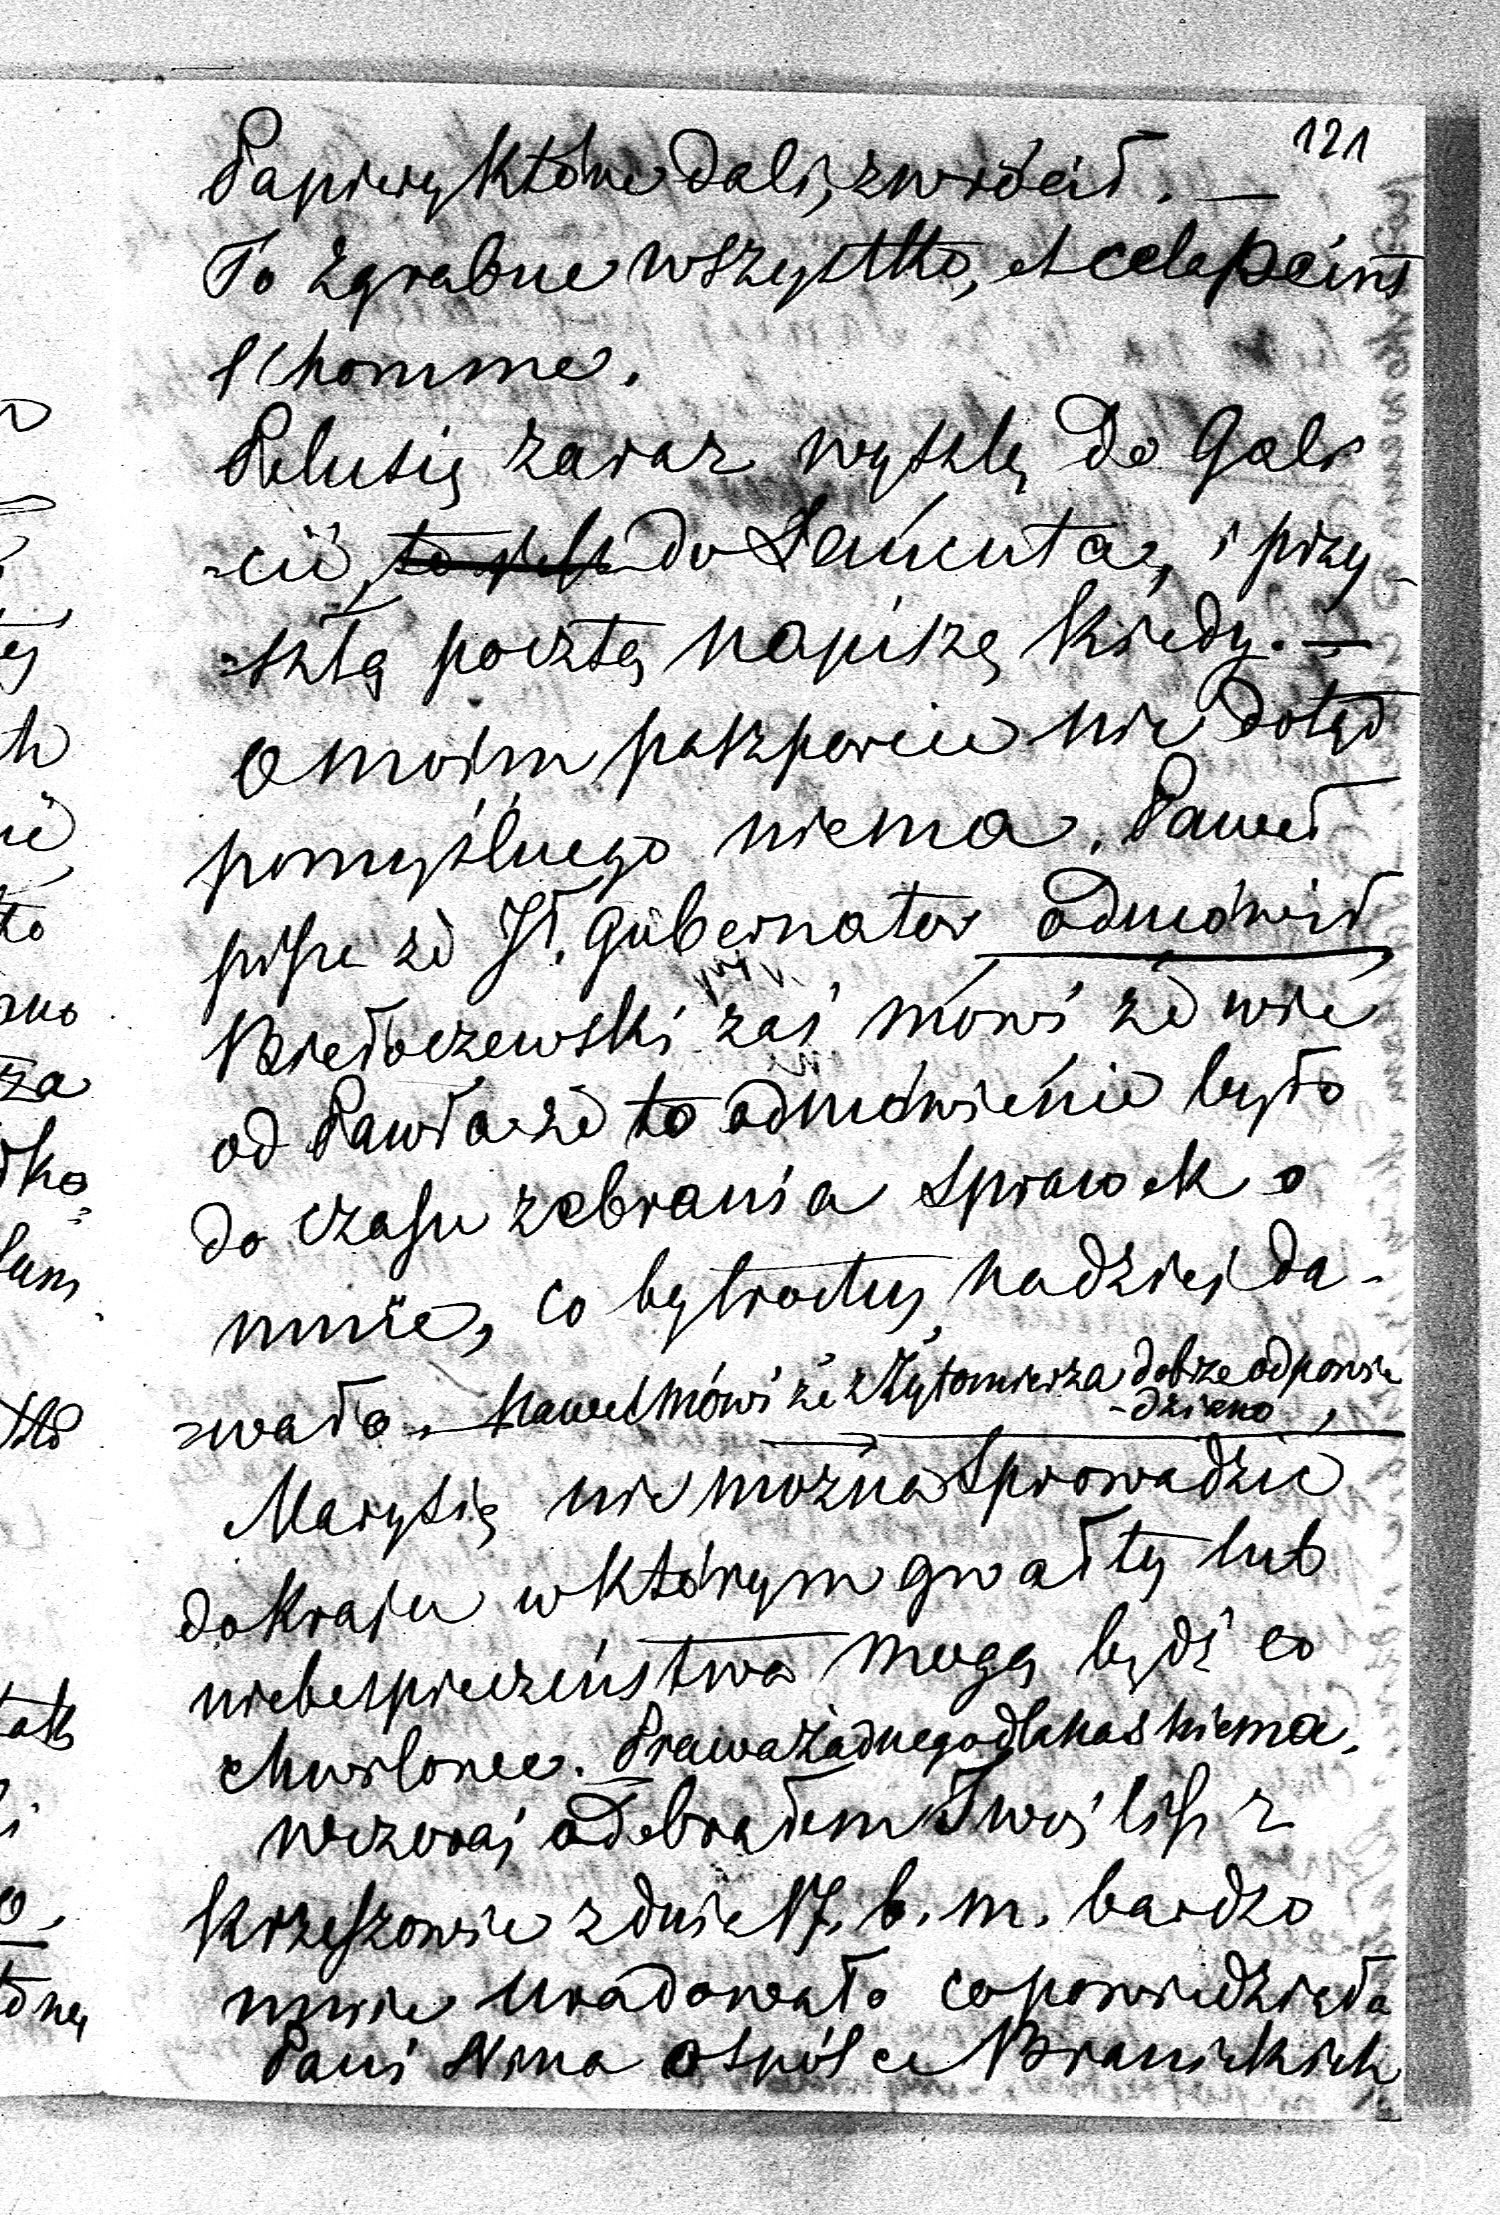 121
Papiery które dali, zwrócił. —
To zgrabne wszystko, et cela peint
l'homme.
Pelusię zaraz wyszlę do Gali
=cii, to jest do Łańcuta, i przy-
=szłą pocztą napiszę kiedy. —
O moim paszporcie nic dotąd
pomyślnego niema. Paweł
pisze że Jł. Gubernator odmówił
Biełoczewski zaś mówi że wie
od Pawła że to odmówienie było
do czasu zebrania sprawek o
mnie, co by trochę nadziei da-
=wało. Paweł mówi że z Żytomierza dobrze odpowie
-dziano,
Marysię nie można sprowadzić
do kraju w którym gwałty lub
niebespieczeństwa mogą bydź co
chwilowe. Prawa żadnego dla nas niema.
Wczoraj odebrałem Twój list z
Krzeszowic z dnia 17. b. m. bardzo
mnie uradowało co powiedziała
Pani Nina o spółce Branickich